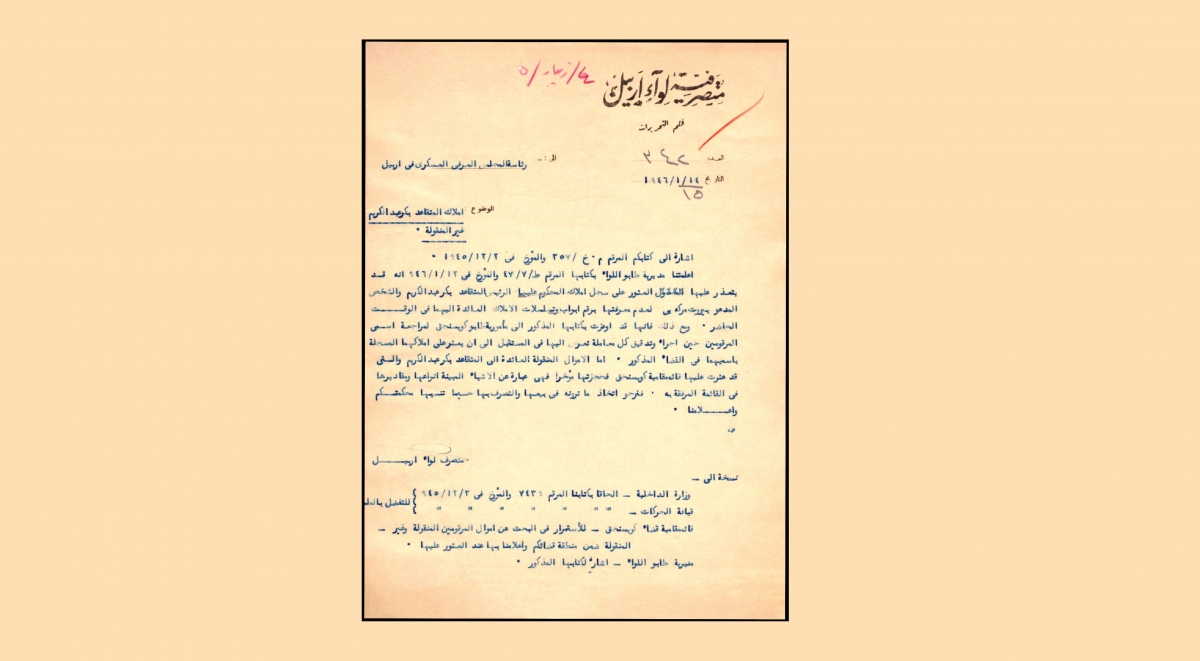 متصرفية لواء اربيل
قلم التحريرات
العدد ٣٤٢
التاريخ ١٩٤٦/١/١٤
١٥
الى :-
رئاسة المجلس العرفي العسكرى فى اربيل
الموضوع
املاك المتقاعد بكر عبد الكريم
غير المنقولة •
اشارة الى كتابكم المرقم م٠خ /٣٥٧ والمؤرخ فى ١٩٤٥/١٢/٢ •
اعلمتنا مديرية طابو اللواء بكتابها المرقم ط/٤٧/٧ والمؤرخ فى ٩٤٦/١/١٢ انه قد
يتعذر عليها الحصول العثور على سجل املاك المحكوم عليهما الرئيس المتقاعد بكر عبد الكريم والشخص
المدعو لعدم معرفتها برقم ابواب وتسلسلات الاملاك العائدة اليهما فى الوقت
الحاضر • ومع ذلك فانها قد اوعزت بكتابها المذكور الى مأمورية طابو كويسنجق لمراجعة اسمى
المرقومين حين اجراء وتدقيق كل معاملة تعرض اليها فى المستقبل الى ان يعثر على املاكهما المسجلة
باسميهما فى القضاء المذكور • اما الاموال المنقولة العائدة الى المتقاعد بكر عبد الكريم والتى
قد عثرت عليها قائممقامية كويسنجق فحجزتها مؤخرا فهى عبارة عن الاشياء المبينة انواعها ومقاديرها
فى القائمة المرفقة به • فنرجو اتخاذ ما ترونه فى بيعها والتصرف بها حسبما تنسبها محكمتكم
واعلامنا •
متصرف لواء اربيل
نسخة الى -
وزارة الداخلية - الحاقا بكتابنا المرقم ٧٤٣٦ والمؤرخ فى ٩٤٥/١٢/٣
للتفضل بالعلم
قيادة الحركات - " " " " " " "
قائممقامية قضاء كويسنجق - للأستمرار فى البحث عن اموال المرقومين المنقولة وغير -
المنقولة ضمن منطقة قضائكم واعلامنا بها عند العثور عليها •
مديرية طابو اللواء - اشارة لكتابها المذكور •